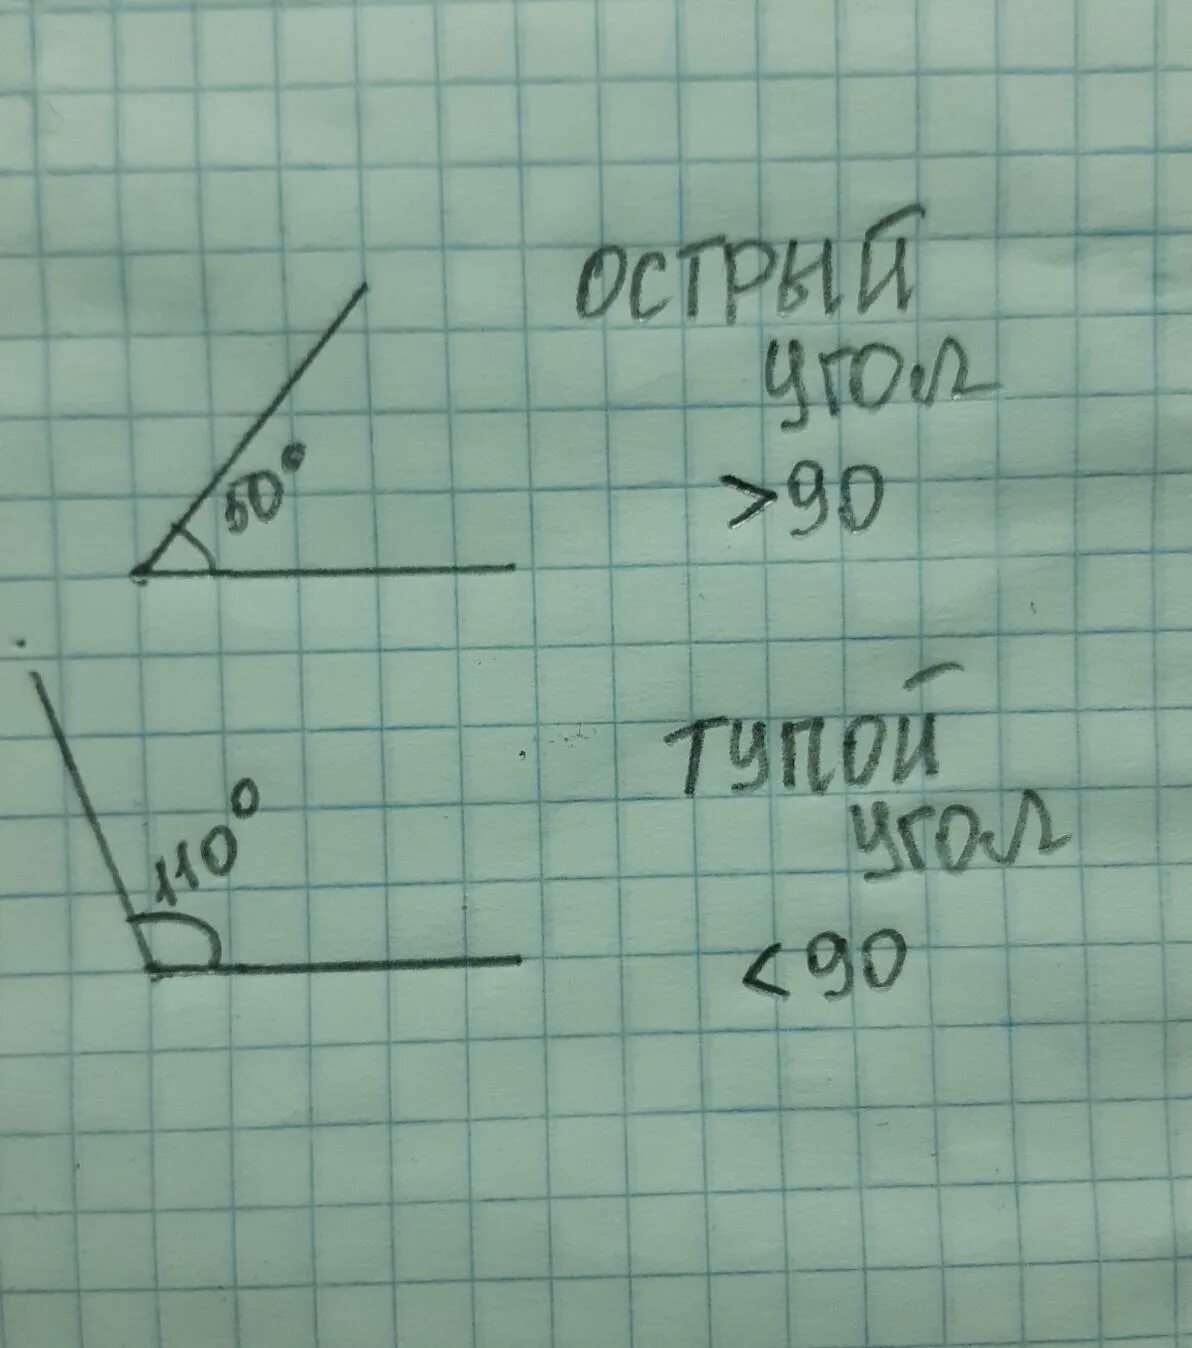 ОСТРЫЙ
угол
50°
>90
ТУПОЙ
угол
110°
<90